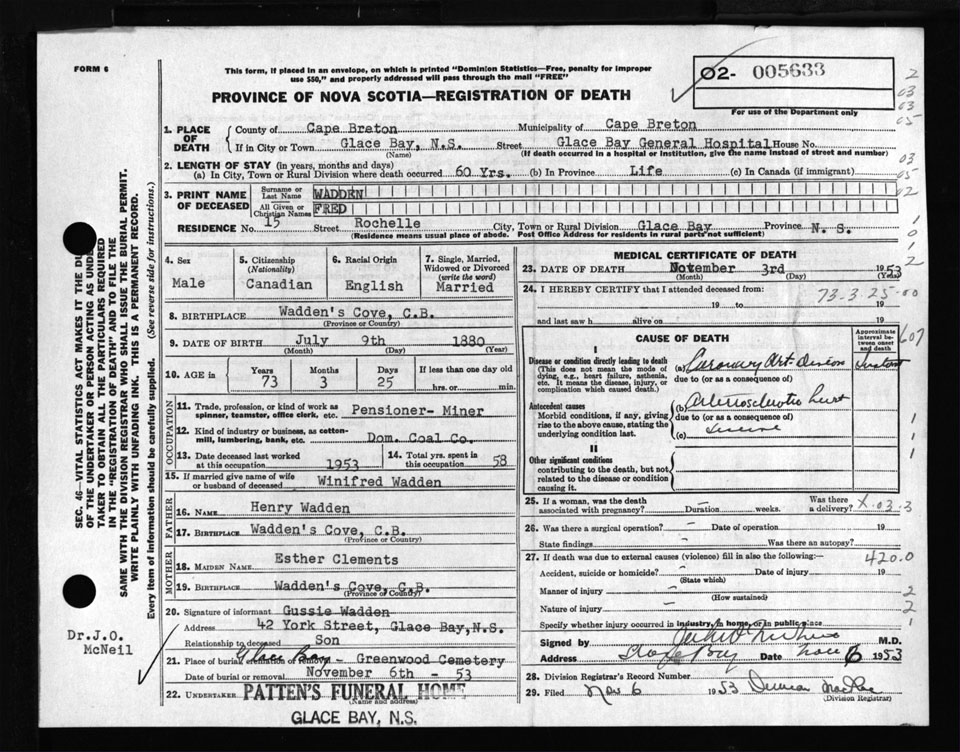 FORM 6
This form, if placed in an envelope, on which is printed "Dominion Statistics—Free, penalty for improper
use $50," and properly addressed will pass through the mail "FREE"
PROVINCE OF NOVA SCOTIA—REGISTRATION OF DEATH
02- 005633
For use of the Department only
1. PLACE OF DEATH County of Cape Breton Municipality of Cape Breton
If in City or Town Glace Bay, N.S. Street Glace Bay General Hospital House No.
(Name) (If death occurred in a hospital or institution, give the name instead of street and number)
2. LENGTH OF STAY (in years, months and days)
(a) In City, Town or Rural Division where death occurred 60 Yrs. (b) In Province Life (c) In Canada (if immigrant)
3. PRINT NAME OF DECEASED Surname or Last Name WADDEN
All Given or Christian Names FRED
RESIDENCE No. 15 Street Rochelle City, Town or Rural Division Glace Bay Province N. S.
(Residence means usual place of abode. Post Office Address for residents in rural parts not sufficient)
4. Sex
Male
5. Citizenship
(Nationality)
Canadian
6. Racial Origin
English
7. Single, Married,
Widowed or Divorced
(write the word)
Married
8. BIRTHPLACE Wadden's Cove, C.B.
(Province or Country)
9. DATE OF BIRTH July 9th 1880
(Month) (Day) (Year)
10. AGE in Years Months Days If less than one day old
73 3 25 hrs. or min.
OCCUPATION
11. Trade, profession, or kind of work as
spinner, teamster, office clerk, etc. Pensioner- Miner
12. Kind of industry or business, as cotton-
mill, lumbering, bank, etc. Dom. Coal Co.
13. Date deceased last worked
at this occupation 1953
14. Total yrs. spent in
this occupation 58
15. If married give name of wife
or husband of deceased Winifred Wadden
FATHER
16. NAME Henry Wadden
17. BIRTHPLACE Wadden's Cove, C.B.
(Province or Country)
MOTHER
18. MAIDEN NAME Esther Clements
19. BIRTHPLACE Wadden's Cove, C.B.
(Province or Country)
20. Signature of informant Gussie Wadden
Address 42 York Street, Glace Bay, N.S.
Relationship to deceased Son
21. Place of burial cremation or removal Glace Bay - Greenwood Cemetery
Date of burial or removal November 6th - 53
22. UNDERTAKER PATTEN'S FUNERAL HOME
(Name and address)
GLACE BAY, N.S.
MEDICAL CERTIFICATE OF DEATH
23. DATE OF DEATH November 3rd 1953
(Month) (Day) (Year)
24. I HEREBY CERTIFY that I attended deceased from:
73-3-25-00
19 to 19
and last saw h alive on 19
CAUSE OF DEATH
Approximate
interval be-
tween onset
and death
607
I
Disease or condition directly leading to death
(This does not mean the mode of
dying, e.g., heart failure, asthenia,
etc. It means the disease, injury, or
complication which caused death.)
(a) Coronary Art.
due to (or as a consequence of)
Antecedent causes
Morbid conditions, if any, giving
rise to the above cause, stating the
underlying condition last.
(b) Arteriosclerotic heart
due to (or as a consequence of)
(c)
II
Other significant conditions
contributing to the death, but not
related to the disease or condition
causing it.
25. If a woman, was the death
associated with pregnancy? Duration weeks. Was there
a delivery? X.03.3
26. Was there a surgical operation? Date of operation 19
State findings Was there an autopsy?
27. If death was due to external causes (violence) fill in also the following: 420.0
Accident, suicide or homicide? Date of injury 19
(State which)
Manner of injury
(How sustained)
Nature of injury
Specify whether injury occurred in industry, in home, or in public place
Signed by M.D.
Address Glace Bay Date Nov 6 1953
28. Division Registrar's Record Number
29. Filed Nov 6 1953 Duncan
(Division Registrar)
SEC. 46—VITAL STATISTICS ACT MAKES IT THE
OF THE UNDERTAKER OR PERSON ACTING AS
TAKER TO OBTAIN ALL THE PARTICULARS REQUIRED
IN THE "REGISTRATION OF DEATH" AND TO FILE THE
SAME WITH THE DIVISION REGISTRAR WHO SHALL ISSUE THE BURIAL PERMIT.
WRITE PLAINLY WITH UNFADING INK. THIS IS A PERMANENT RECORD.
Every item of information should be carefully supplied. (See reverse side for instructions.)
Dr. J.O.
McNeil
2
03
03
05
03
05
02
1
0
1
2
1
1
1
2
2
1